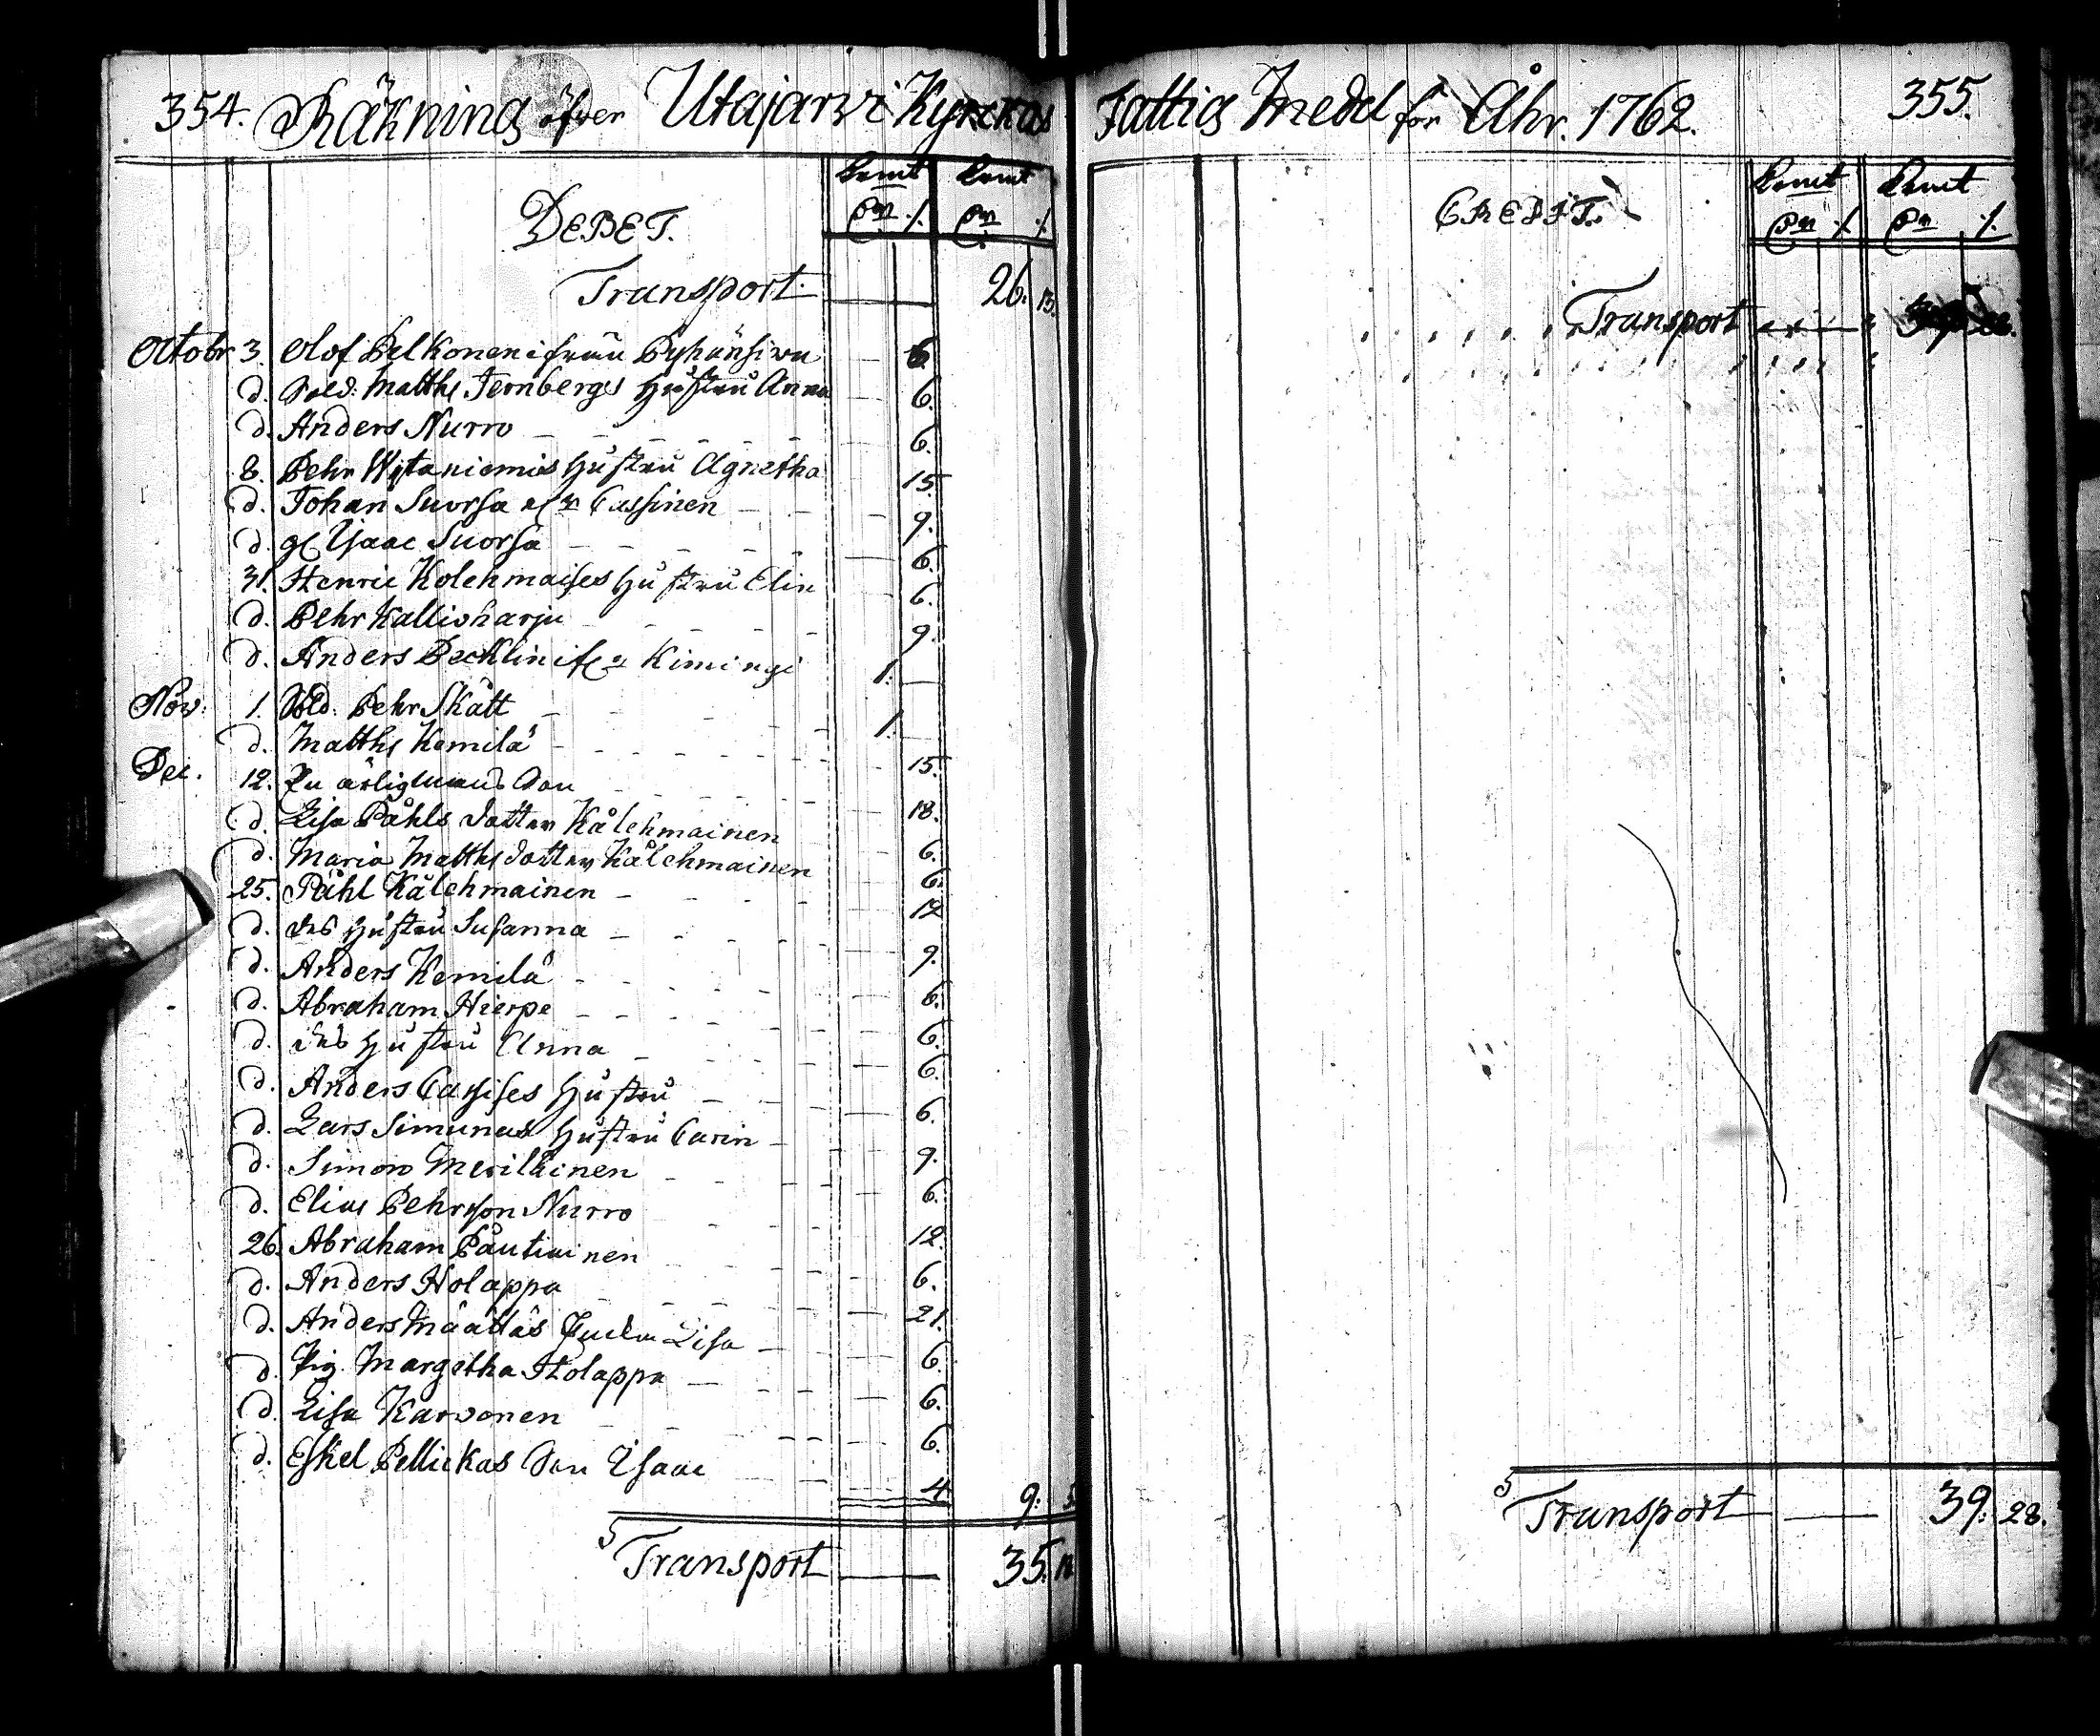 354. Räkning öfwer Utajärwi Kyrckas
DEBET.
Kpmt Kpmt
Transport. — 26. 13.
Octobr 3. Olof Pelkonen ifrån Pyhänsiwu — 6
d. Sold. Matths Ternbergs Hustru Anna — 6.
d. Anders Nurro — 6.
8. Pehr Wstaniemis Hustru Agnetha — 15.
d. Johan Suorsa Cassinen — 9.
d. gl Isaac Suorsa — 6.
31. Henric Kolehmaises Hustru Elin — 6.
d. Pehr Kallioharju — 9.
d. Anders Pecklin Kimingi 1. —
Nov. 1. Sold. Pehr Skatt 1. —
d. Matths Kemilä — 15.
Dec. 12. En ärlig mans Son — 18.
d. Lisa Påhls dotter Kålehmainen — 6.
d. Maria Matths dotter Kålehmainen — 6.
25. Påhl Kålehmainen — 12
d. des Hustru Susanna — 9.
d. Anders Kemilä — 6.
d. Abraham Hierpe — 6.
d. des Hustru Anna — 6.
d. Anders Cassises Hustru — 6.
d. Lars Simunas Hustru Carin — 9.
d. Simon Meriläinen — 6.
d. Elias Pehrsson Nurro — 12.
26. Abraham Påutiainen — 6.
d. Anders Holappa — 21.
d. Anders Määttäs Lisa — 6.
d. Pig. Margetha Holappa — 6.
d. Lisa Karvonen — 6.
d. Eskel Pellickas Son Isaac
4 9. 5
Transport — 35. 18
Fattigs Medel för Åhr. 1762. 355.
CREDIT.
Kpmt Kpmt
Transport
Transport — 39. 28.